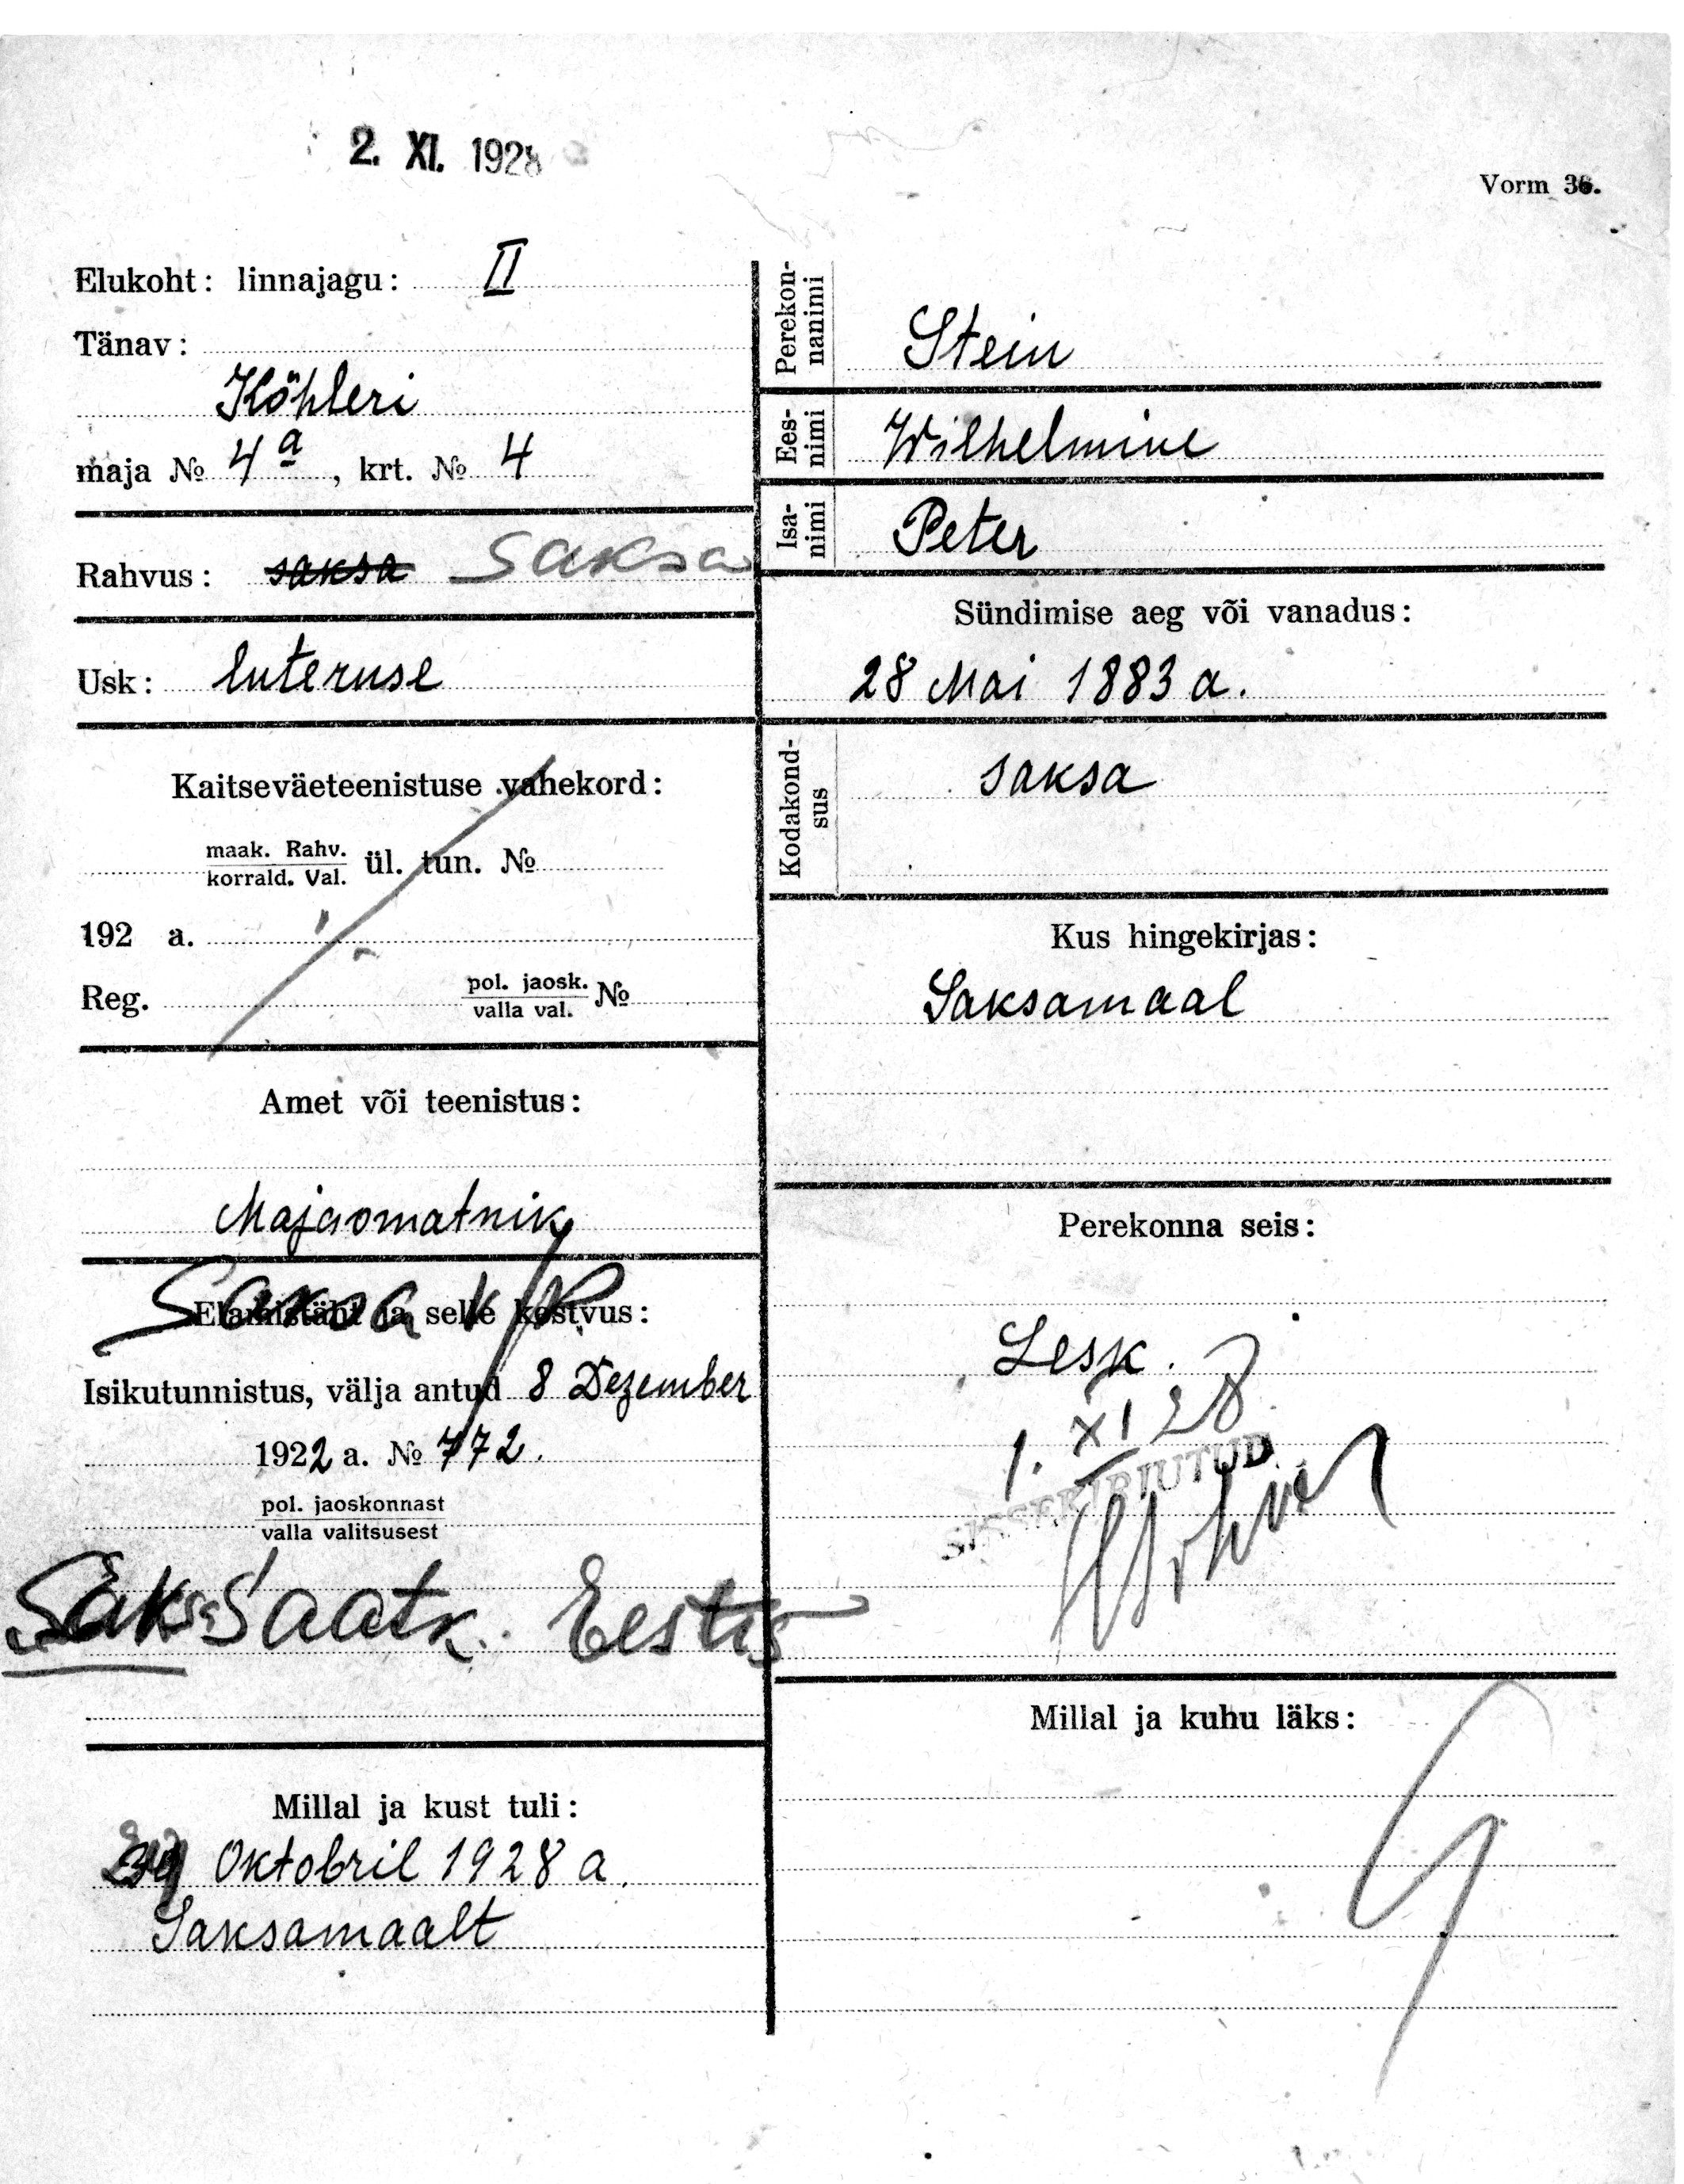 2. XI. 1928
Vorm 36.
Elukoht: linnajagu: II
Tänav:
Köhleri
maja № 4a, krt. № 4
Rahvus: saksa Saksa
Usk: luteruse
Kaitseväeteenistuse vahekord:
maak. Rahv.
korrald. Val. ül. tun. №
192 a.
Reg. pol. jaosk.
valla val. №
Amet või teenistus:
Majaomatnik
Saksa v/p
Elamistäht ja selle kestvus:
Isikutunnistus, välja antud 8 Dezember
1922 a. № 772.
pol. jaoskonnast
valla valitsusest
Saksa Saatk. Eestis
Millal ja kust tuli:
Oktobril 1928 a.
Saksamaalt
Perekonnanimi
Stein
Eesnimi
Wilhelmine
Isanimi
Peter
Sündimise aeg või vanadus:
28 Mai 1883 a.
Kodakondsus
saksa
Kus hingekirjas:
Saksamaal
Perekonna seis:
Lesk.
1. XI 28
SISSEKIRJUTUD
Millal ja kuhu läks: